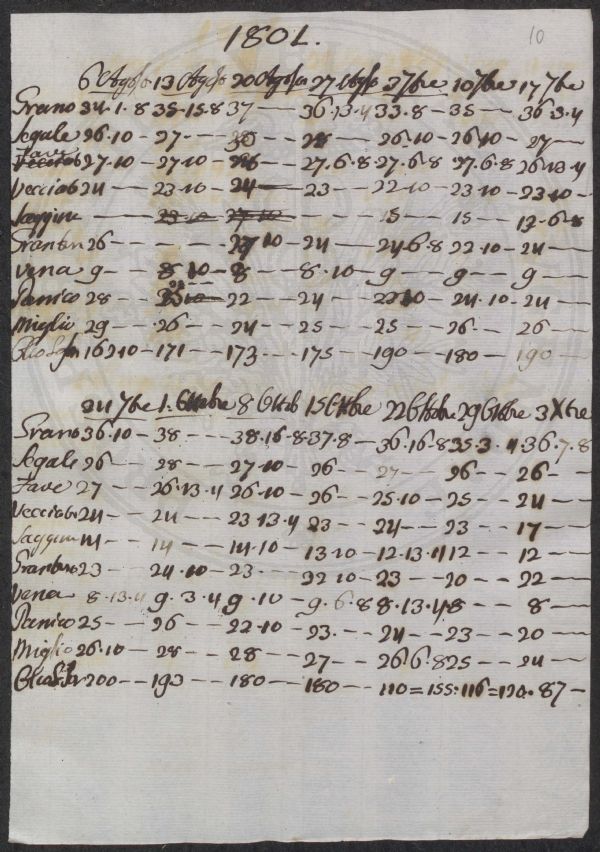 1801.
10
6 Agosto 13 Agosto 20 Agosto 27 Agosto 3 7bre 10 7bre 17 7bre
Grano 34.1.8 35-15.8 37 — 36.13.4 33.8 — 35 — 36 3.4
Segale 26.10 - 27 - - - 30 - - 28 - - 26.10 - 26 10 - 27 —
Fave 27.10 - 27.10 - 26 - - 27.6.8 - 27.6.8 27.6.8 26 13.4
Vecciato 24 — 23.10 - 24 — 23 - - 22.10 23.10 - 23 10 -
Saggina — 23 10 27 10 - - - 15 - - 15 - - 12.6.8
Grantur 26 - - - - 27 10 - 24 — 24.6.8 22.10 - 24 —
Vena 9 - - 8.10 - 8 - - 8.10 - 9 - - 9 - - 9 —
Panico 28 - - 22 - - 24 — 22 10 - 24.10 - 24 —
Miglio 29 - - 26 - - - 24 - - 25 - - 25 - - 26 - - 26 —
162 10 - 171 — 173 - - - 175 — 190 — 180 — 190 —
24 7bre 1. Ottobre 8 Ottob 15 Ottbre 22 Ottobre 29 Ottbre 3 Xbre
Grano 36.10 - 38 - - - 38.16.8 37.8 — 36.16.8 35.3.4 36.7.8
Segale 26 - - 28 - - - 27.10 - 26 - - - 27 - - - 26 - - 26 —
Fave 27 - - - 26.13.4 26.10 - 26 - - 25.10 - 25 - - 24 —
Vecciato 24 - - 24 - - - 23.13.4 23 - - - 24 - - 23 - - 17 —
Saggina 14 - - 14 - - - 14.10 - 13 10 - 12.13.4 12 - - 12 —
Grantur 23 - - - 24.10 - 23 - - - 22 10 - 23 - - - 20 - - 22 —
Vena 8.13.4 9.3.4 9.10 - 9.6.8 8.13.4 8 - - - 8 —
Panico 25 - - - 26 - - - 22.10 - 23. - - 24 - - 23 - - 20 —
Miglio 26.10 - 28 - - - 28 - - - 27 - - 26.6.8 25 - - - 24 —
200 - - 193 - - - 180 - - 180 - - 110 = 155. 116 = 120. 87 -